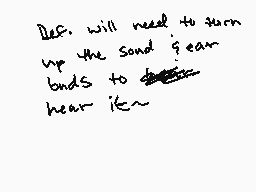 Def. will need to turn
up the sound & ear
buds to
hear it~